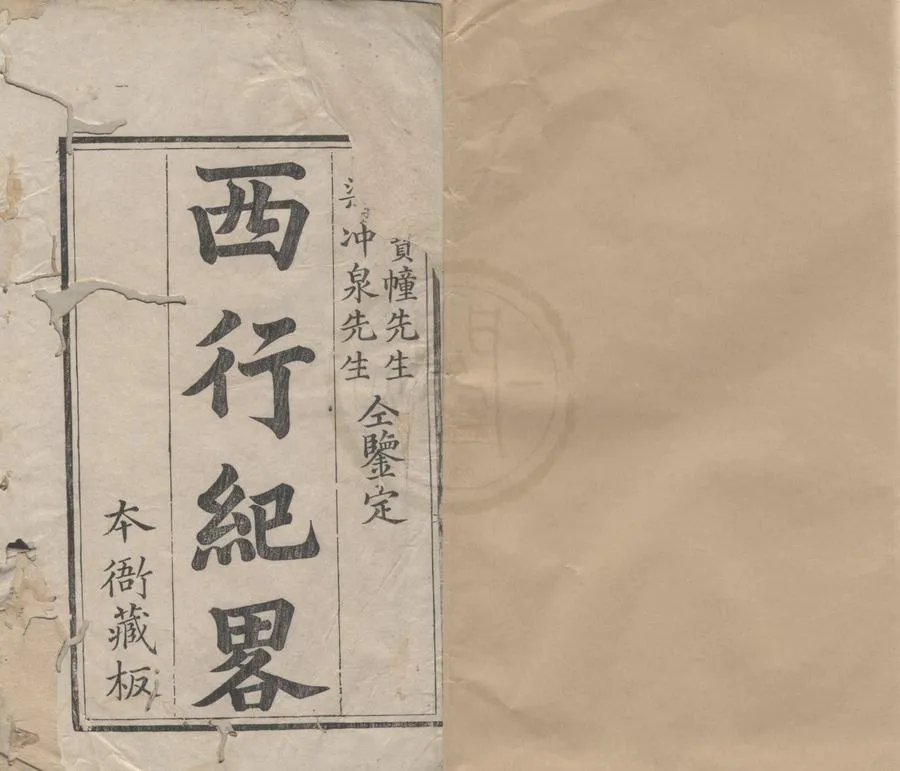 幢先生
冲泉先生
仝鑒定
西行紀畧
本衙藏板